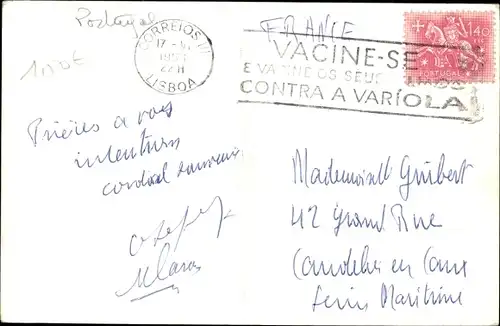 Portugal
FRANCE
CORREIOS
17
LISBOA
VACINE-SE
E VACINE OS SEUS
CONTRA A VARÍOLA
1$40
PORTUGAL
Prières à vos
intentions
cordial souvenir
Mademoiselle Guibert
42 Grand Rue
Caudebec en Caux
Seine Maritime